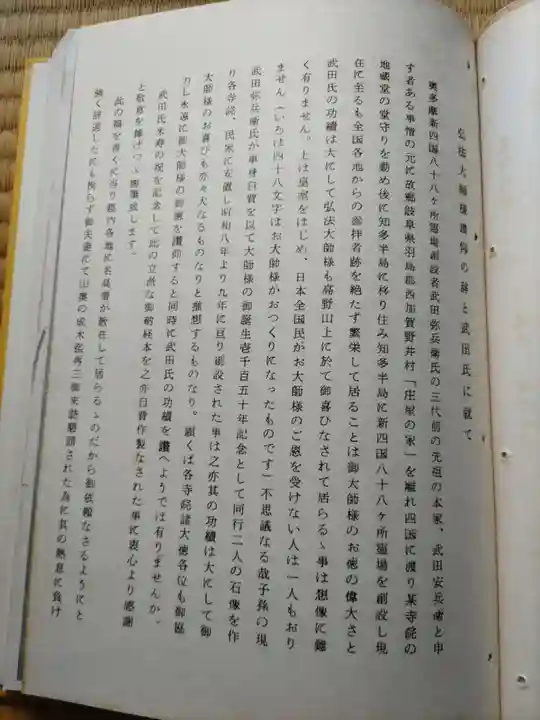 弘法大師様遺徳の詩と武田氏に就て
奥多摩新四国八十八ヶ所霊場創設者武田弥兵衛氏の三代前の先祖の本家、武田安兵衛と申
す者ある事情の元に故郷岐阜県羽島郡西加賀野井村「庄屋の家」を離れ四国に渡り某寺院の
地蔵堂の堂守りを勤め後に知多半島に移り住み知多半島に新四国八十八ヶ所霊場を創設し現
在に至るも全国各地からの参拝者跡を絶たず繁栄して居ることは御大師様のお徳の偉大さと
武田氏の功績は大にして弘法大師様も高野山上に於て御喜びなされて居らるゝ事は想像に難
く有りません。上は皇室をはじめ、日本全国民がお大師様のご恩を受けない人は一人もおり
ません(いろは四十八文字はお大師様がおつくりになったものです)不思議なる哉子孫の現
武田弥兵衛氏が単身自費を以て大師様の御誕生壱千百五十年記念として同行二人の石像を作
り各寺院、民家に安置し昭和八年より九年に亘り創設された事は之亦其の功績は大にして御
大師様のお喜びも亦々大なるものなりと推想するものなり。願くは各寺院諸大徳各位も御協
力し永遠に御大師様の御徳を讃仰すると同時に武田氏の功績を讃へようでは有りませんか。
武田氏米寿の祝を記念して此の立派な御納経本を之亦自費作製なされた事に衷心より感謝
と敬意を捧げつゝ御推致します。
此の稿を書くに当り都内各地に名員者が散在して居らるゝのだから御依頼なさるようにと
強く辞退したにも拘らず御夫妻にて山奥の成木迄再三御来談懇請された為に其の熱意に負け